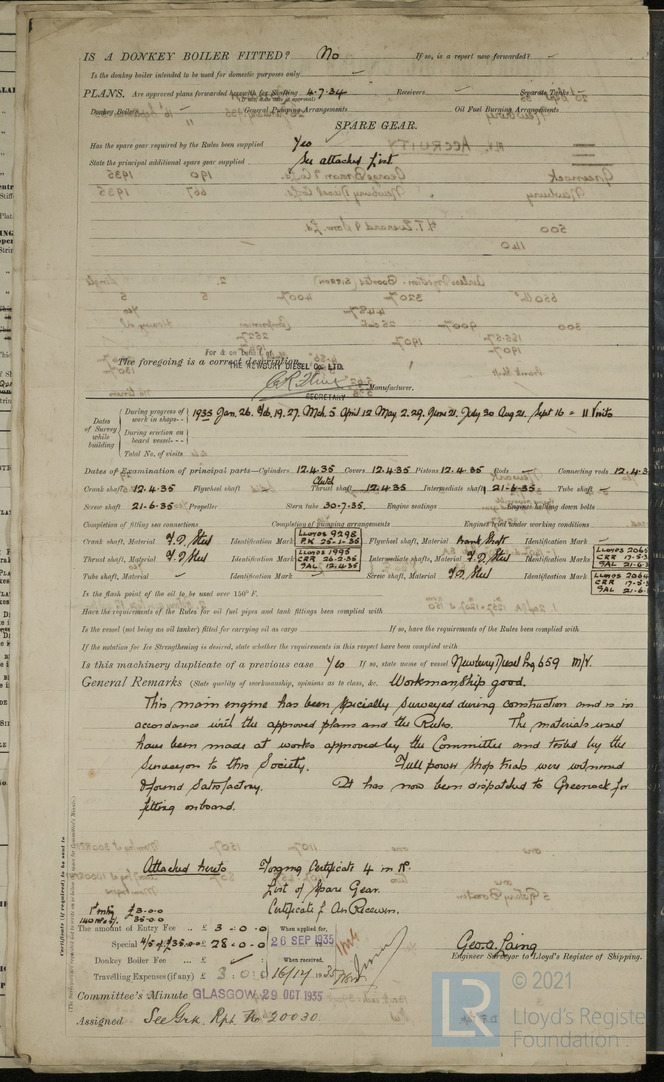 IS A DONKEY BOILER FITTED? No If so, is a report now forwarded?
Is the donkey boiler intended to be used for domestic purposes only
PLANS. Are approved plans forwarded herewith for Shafting 4.7.34 Receivers Separate Tanks
Donkey Boilers General Pumping Arrangements Oil Fuel Burning Arrangements
SPARE GEAR.
Has the spare gear required by the Rules been supplied Yes
State the principal additional spare gear supplied See attached List
For & on behalf of
The foregoing is a correct description,
THE NEWBURY DIESEL Co. LTD.
Manufacturer.
SECRETARY
Dates of Survey while building
During progress of work in shops - - 1935 Jan. 26. Feb. 19. 27. Mch. 5 April 12 May 2. 29. June 21. July 30 Aug 21. Sept 16 = 11 Visits
During erection on board vessel - - -
Total No. of visits
Dates of Examination of principal parts—Cylinders 12.4.35 Covers 12.4.35 Pistons 12.4.35 Rods Connecting rods 12.4.3
Crank shaft 12.4.35 Flywheel shaft Thrust shaft 12.4.35 Intermediate shafts 21.6.35 Tube shaft
Screw shaft 21.6.35 Propeller Stern tube 30.7.35. Engine seatings Engines holding down bolts
Completion of fitting sea connections Completion of pumping arrangements Engines tried under working conditions
Crank shaft, Material I.D. Steel Identification Mark LLOYDS 9298 P.K 25-1-35 Flywheel shaft, Material Crank Shaft Identification Mark
Thrust shaft, Material I.D. Steel Identification Mark LLOYDS 1995 CRR 26-2-35 GAL 12.4.35 Intermediate shafts, Material I.D. Steel Identification Marks LLOYDS 2065 CRR 17-5-3 GAL 21-6-3
Tube shaft, Material Identification Mark Screw shaft, Material I.D. Steel Identification Mark LLOYDS 2064 CRR 17-5-3 GAL 21-6-
Is the flash point of the oil to be used over 150° F.
Have the requirements of the Rules for oil fuel pipes and tank fittings been complied with
Is the vessel (not being an oil tanker) fitted for carrying oil as cargo If so, have the requirements of the Rules been complied with
If the notation for Ice Strengthening is desired, state whether the requirements in this respect have been complied with
Is this machinery duplicate of a previous case Yes If so, state name of vessel Newbury Diesel No 659 M/V.
General Remarks (State quality of workmanship, opinions as to class, &c. Workmanship good.
This main engine has been specially surveyed during construction and is in
accordance with the approved plans and the Rules. The materials used
have been made at works approved by the Committee and tested by the
Surveyors to this Society. Full power shop trials were witnessed
& found satisfactory. It has now been dispatched to Greenock for
fitting onboard.
Attached hereto Forging Certificate 4 in No.
List of Spare Gear.
Certificate f. Air Receivers.
The amount of Entry Fee .. £ 3 - 0 - 0 When applied for,
Special 4/5 of £35.0.0 £ 28 - 0 - 0 26 SEP 1935
Donkey Boiler Fee .. £ When received,
Travelling Expenses (if any) £ 3 : 0 : 0 1935
Geo. A. Laing
Engineer Surveyor to Lloyd's Register of Shipping.
Committee's Minute GLASGOW 29 OCT 1935
Assigned See Grk. Rpt. No 20030
© 2021
LR Lloyd's Register
Foundation